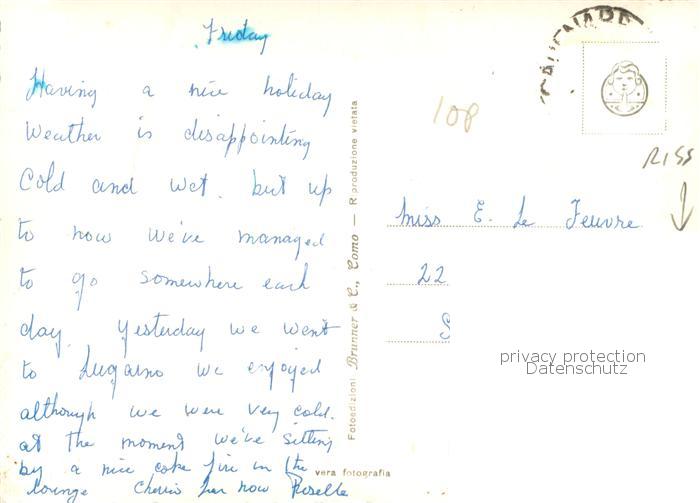 Friday
Having a nice holiday
Weather is disappointing
Cold and wet. but up
to now we've managed
to go somewhere each
day. Yesterday we went
to Lugarno we enjoyed
although we were very cold.
at the moment we've sitting
by a nice coke fire in the
lounge Cherio for now
Fotoedizioni Brunner & C., Como — Riproduzione vietata
vera fotografia
108
RISS
Miss E. Le Feuvre
22
S
privacy protection
Datenschutz